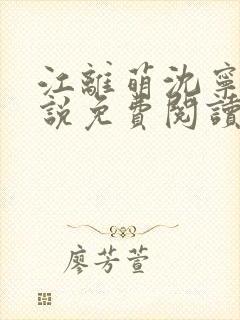 江離萌沈寧
說免費閱讀
廖芳萱